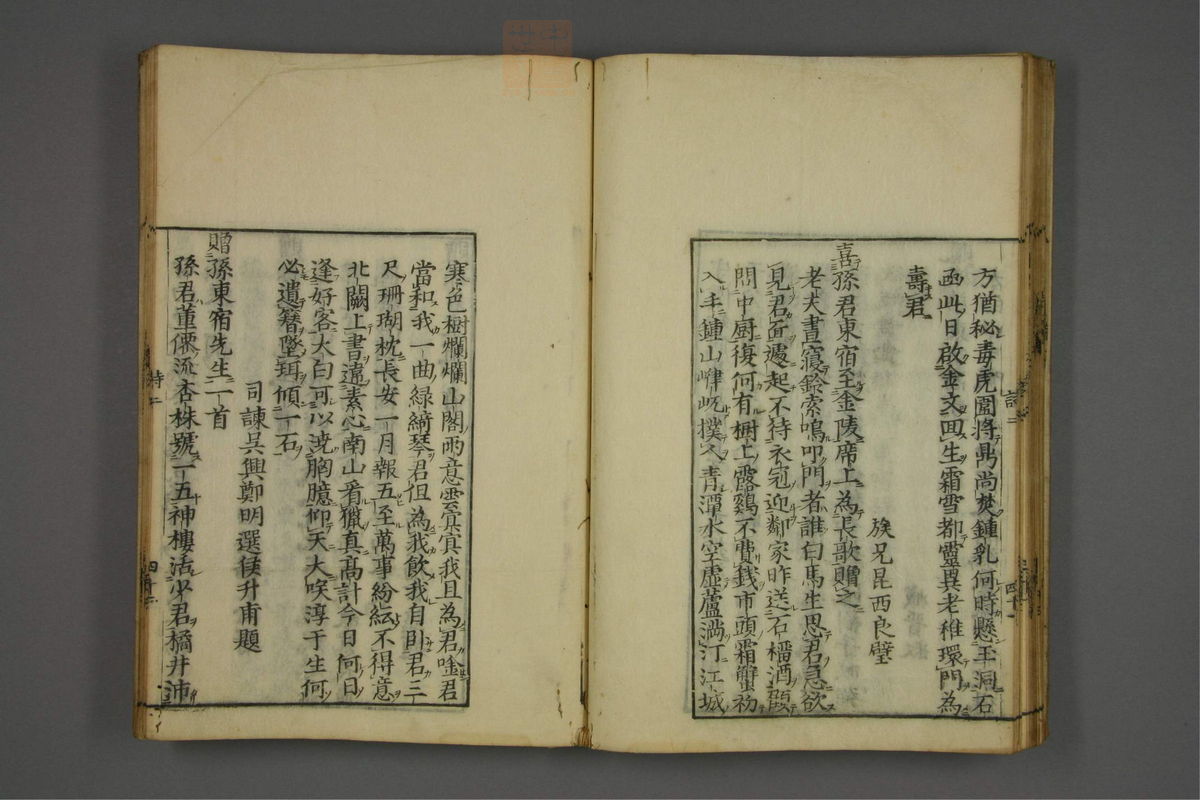 方猶秘毒虎圖將鼎尚煑鍾乳何時懸玉洞石
函此日啟金文回生霜雪都靈異老稚環門為
壽君
族兄昆西良璧
喜孫君東宿至金陵席上為長歌贈之
老夫晝寢鈴索鳴叩門者誰曰馬生思君急欲
見君面遽起不待衣冠迎鄰家昨送石榴酒
問中厨復何有橱上露鷄不費錢市頭霜蟹初
入手鍾山峍屼撲人青潭水空虛蘆滿汀江城
寒色樹爛爛山閣雨意雲冥冥我且為君唫君
當和我一曲綠綺琴君但為我飲我自卧君三
尺珊瑚枕長安一月報五至萬事紛紜不得意
北闕上書遠素心南山看獵真高計今日何日
逢好客大白可以澆胸臆仰天大唉淳于生何
必遺簪墜珥傾一石
司諫吳興鄭明選侯升甫題
贈孫東宿先生一首
孫君董僊流杏株號一五神樓活少君橘井沛